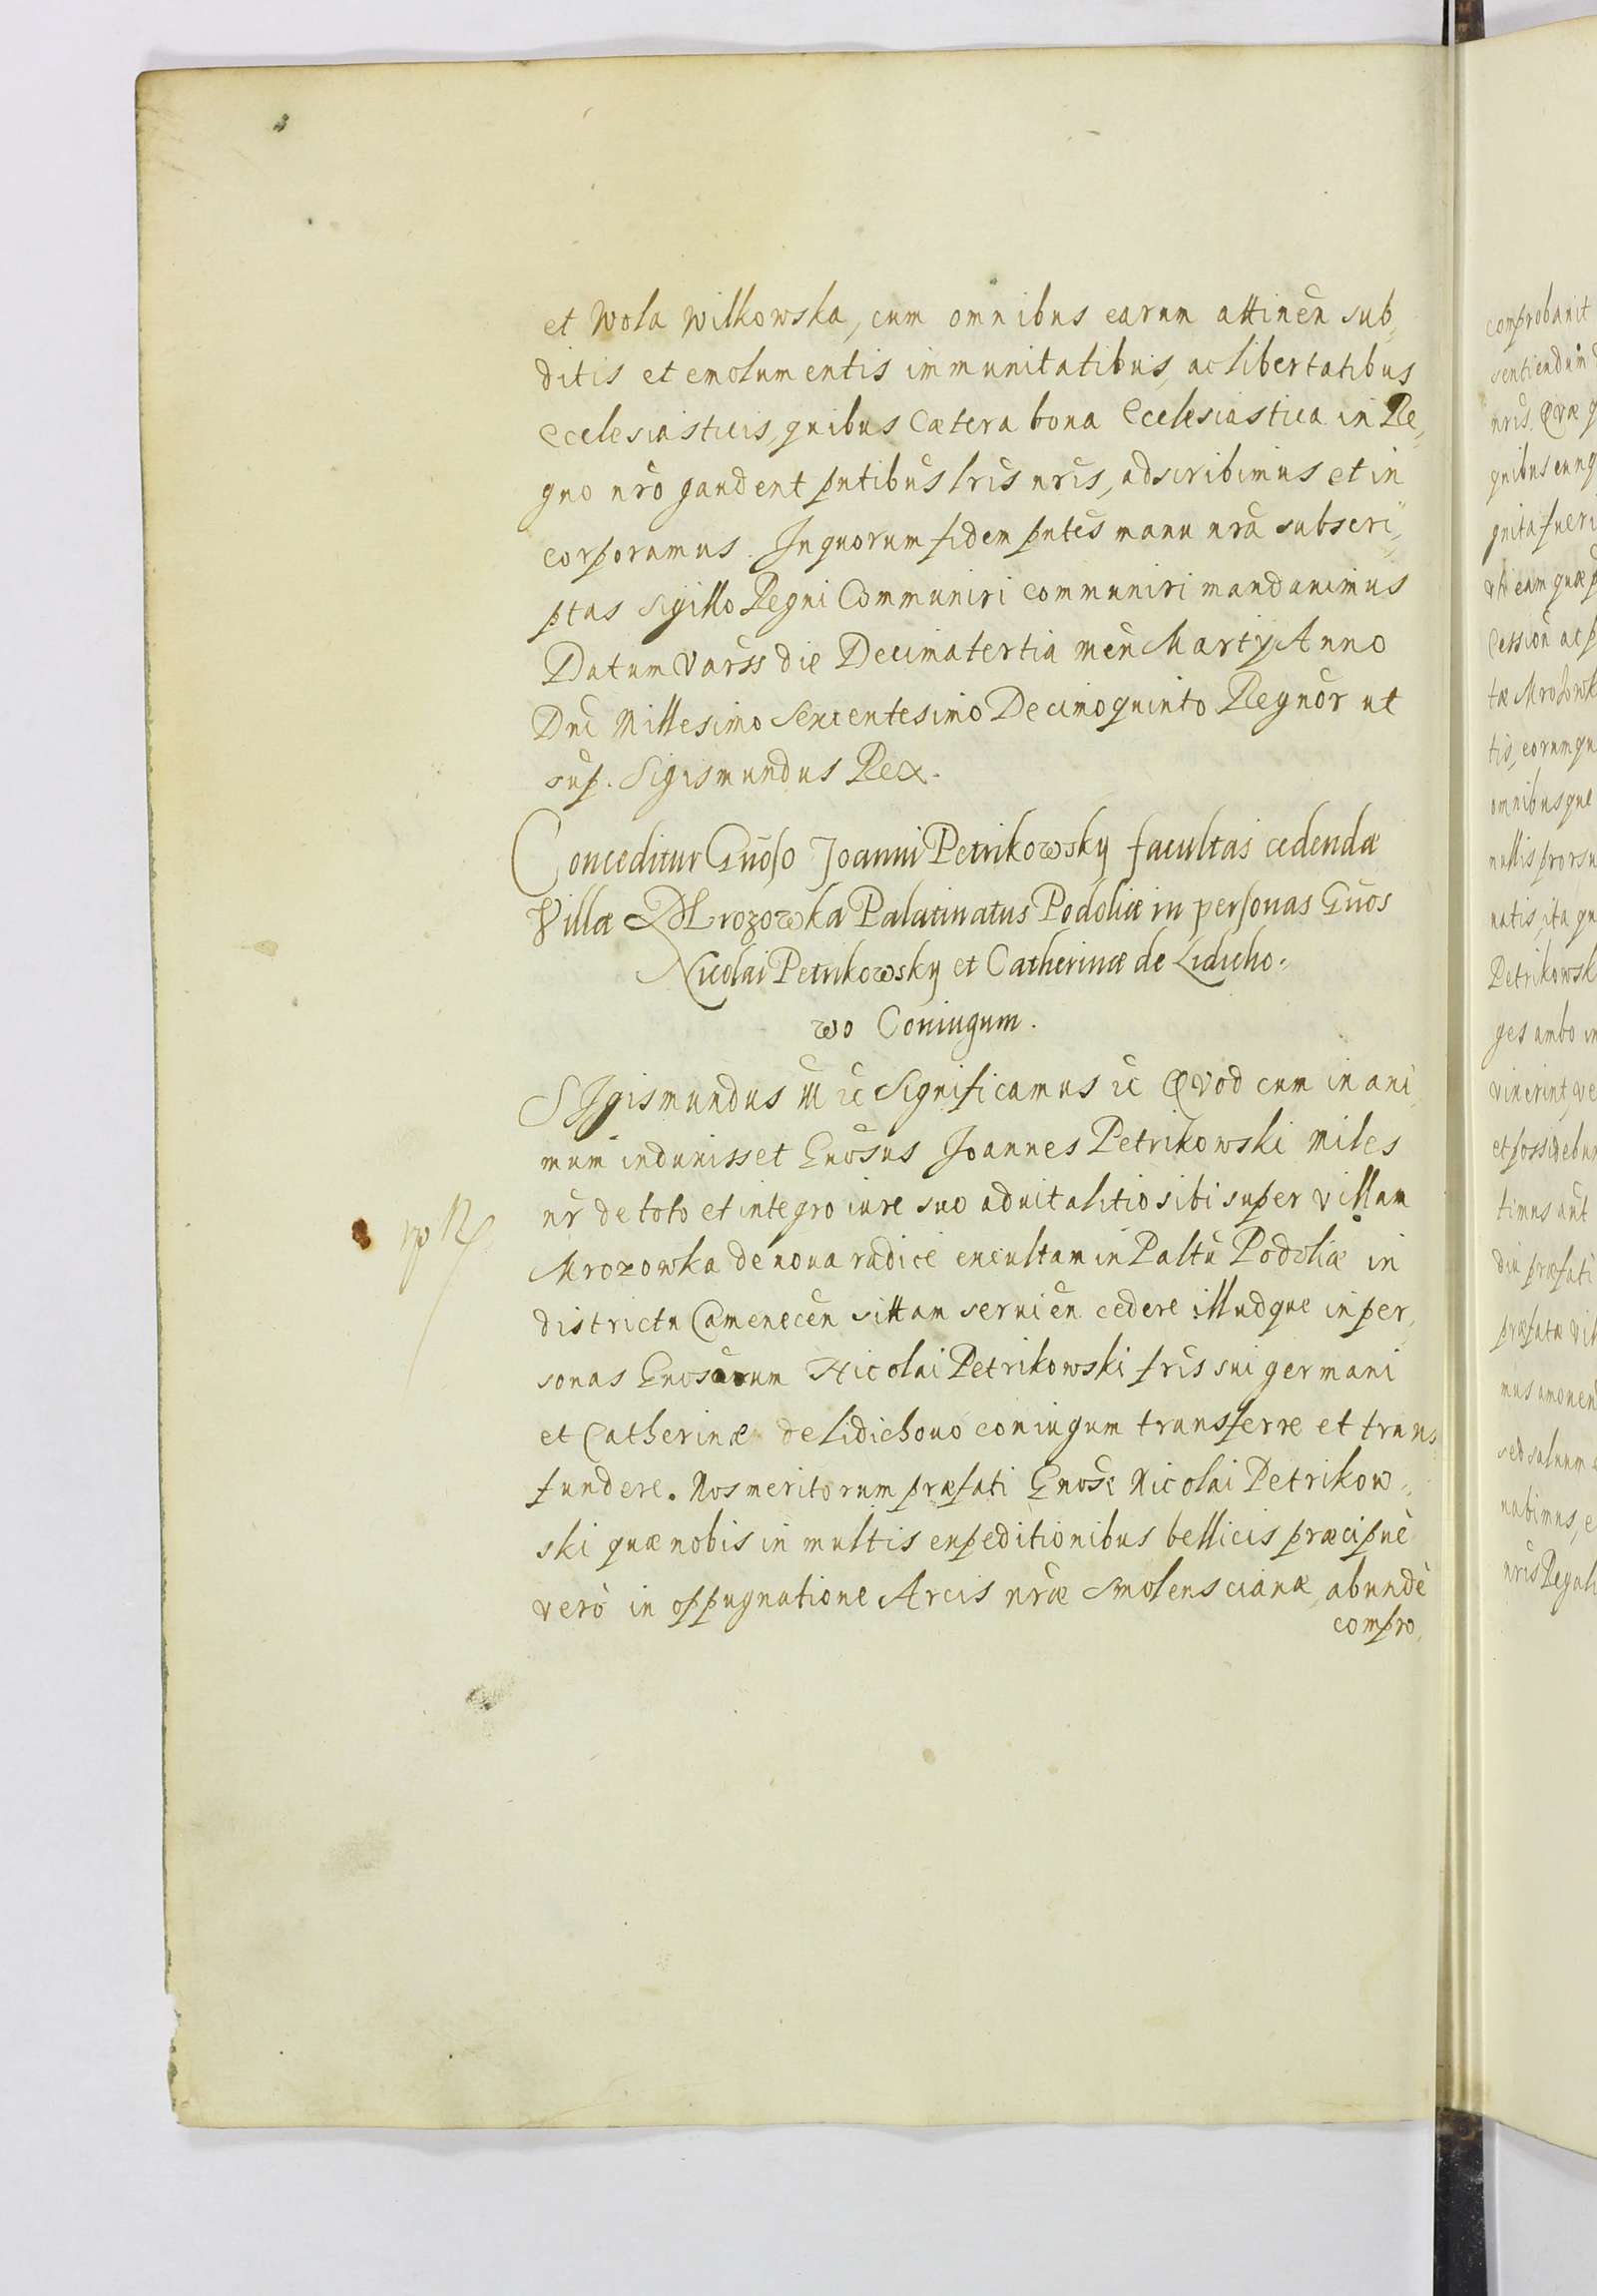 et Wola Wilkowska, cum omnibus earum attinen̄ sub,
ditis et emolumentis immunitatibus, ac libertatibus
Ecclesiasticis, quibus Cætera bona Ecclesiastica in Re,
gno nr̄o gaudent pn̄tibus lr̄is nr̄is, adscribimus et in
corporamus. In quorum fidem pn̄tes manu nr̄a subscri,
ptas sigillo Regni Communiri communiri mandauimus
Datum Varss die Decimatertia men̄ Martij Anno
Dn̄i Millesimo Sexcentesimo Decimo quinto Regnor̄ ut
sup. Sigismundus Rex.
Conceditur Gn̄oso Joanni Petrikowsky facultas cedendæ
Villæ Mrozowka Palatinatus Podoliæ in personas Gn̄os
Nicolai Petrikowsky et Catherinæ de Lidicho-
wo Coniugum.
SIgismundus III ɛc Significamus ɛc QVod cum in ani
mum induxisset Gn̄osus Joannes Petrikowski Miles
nr̄ de toto et integro iure suo aduitalitio sibi super villam
Mrozowka de noua radice excultam in Paltū Podoliæ in
districtu Camenecen̄ sittam seruien̄ cedere illudque in per,
sonas Gn̄osarum Nicolai Petrikowski fr̄is sui germani
et Catherinæ de Lidichouo coniugum transferre et trans
fundere. Nos meritorum præfati Gn̄osi Nicolai Petrikow-
ski quæ nobis in multis expeditionibus bellicis præcipuè
verò in oppugnatione Arcis nr̄æ Smolenscianæ abundè
compro,
comprobauit
sentiendum
nr̄is. Qvæ q
quibuscunq
quita fueri
vti eam quæ p
Cession̄ ac p
tæ Mrozowk
tis, eorumqu
omnibusque
nullis prorsu
natis, ita qu
Petrikowsk
ges ambo in
vixerint, ve
et possidebun
timus aut̄
diu præfati
præfatæ vil
mus amouend
sed saluum
uabimus, e
nr̄is Regali